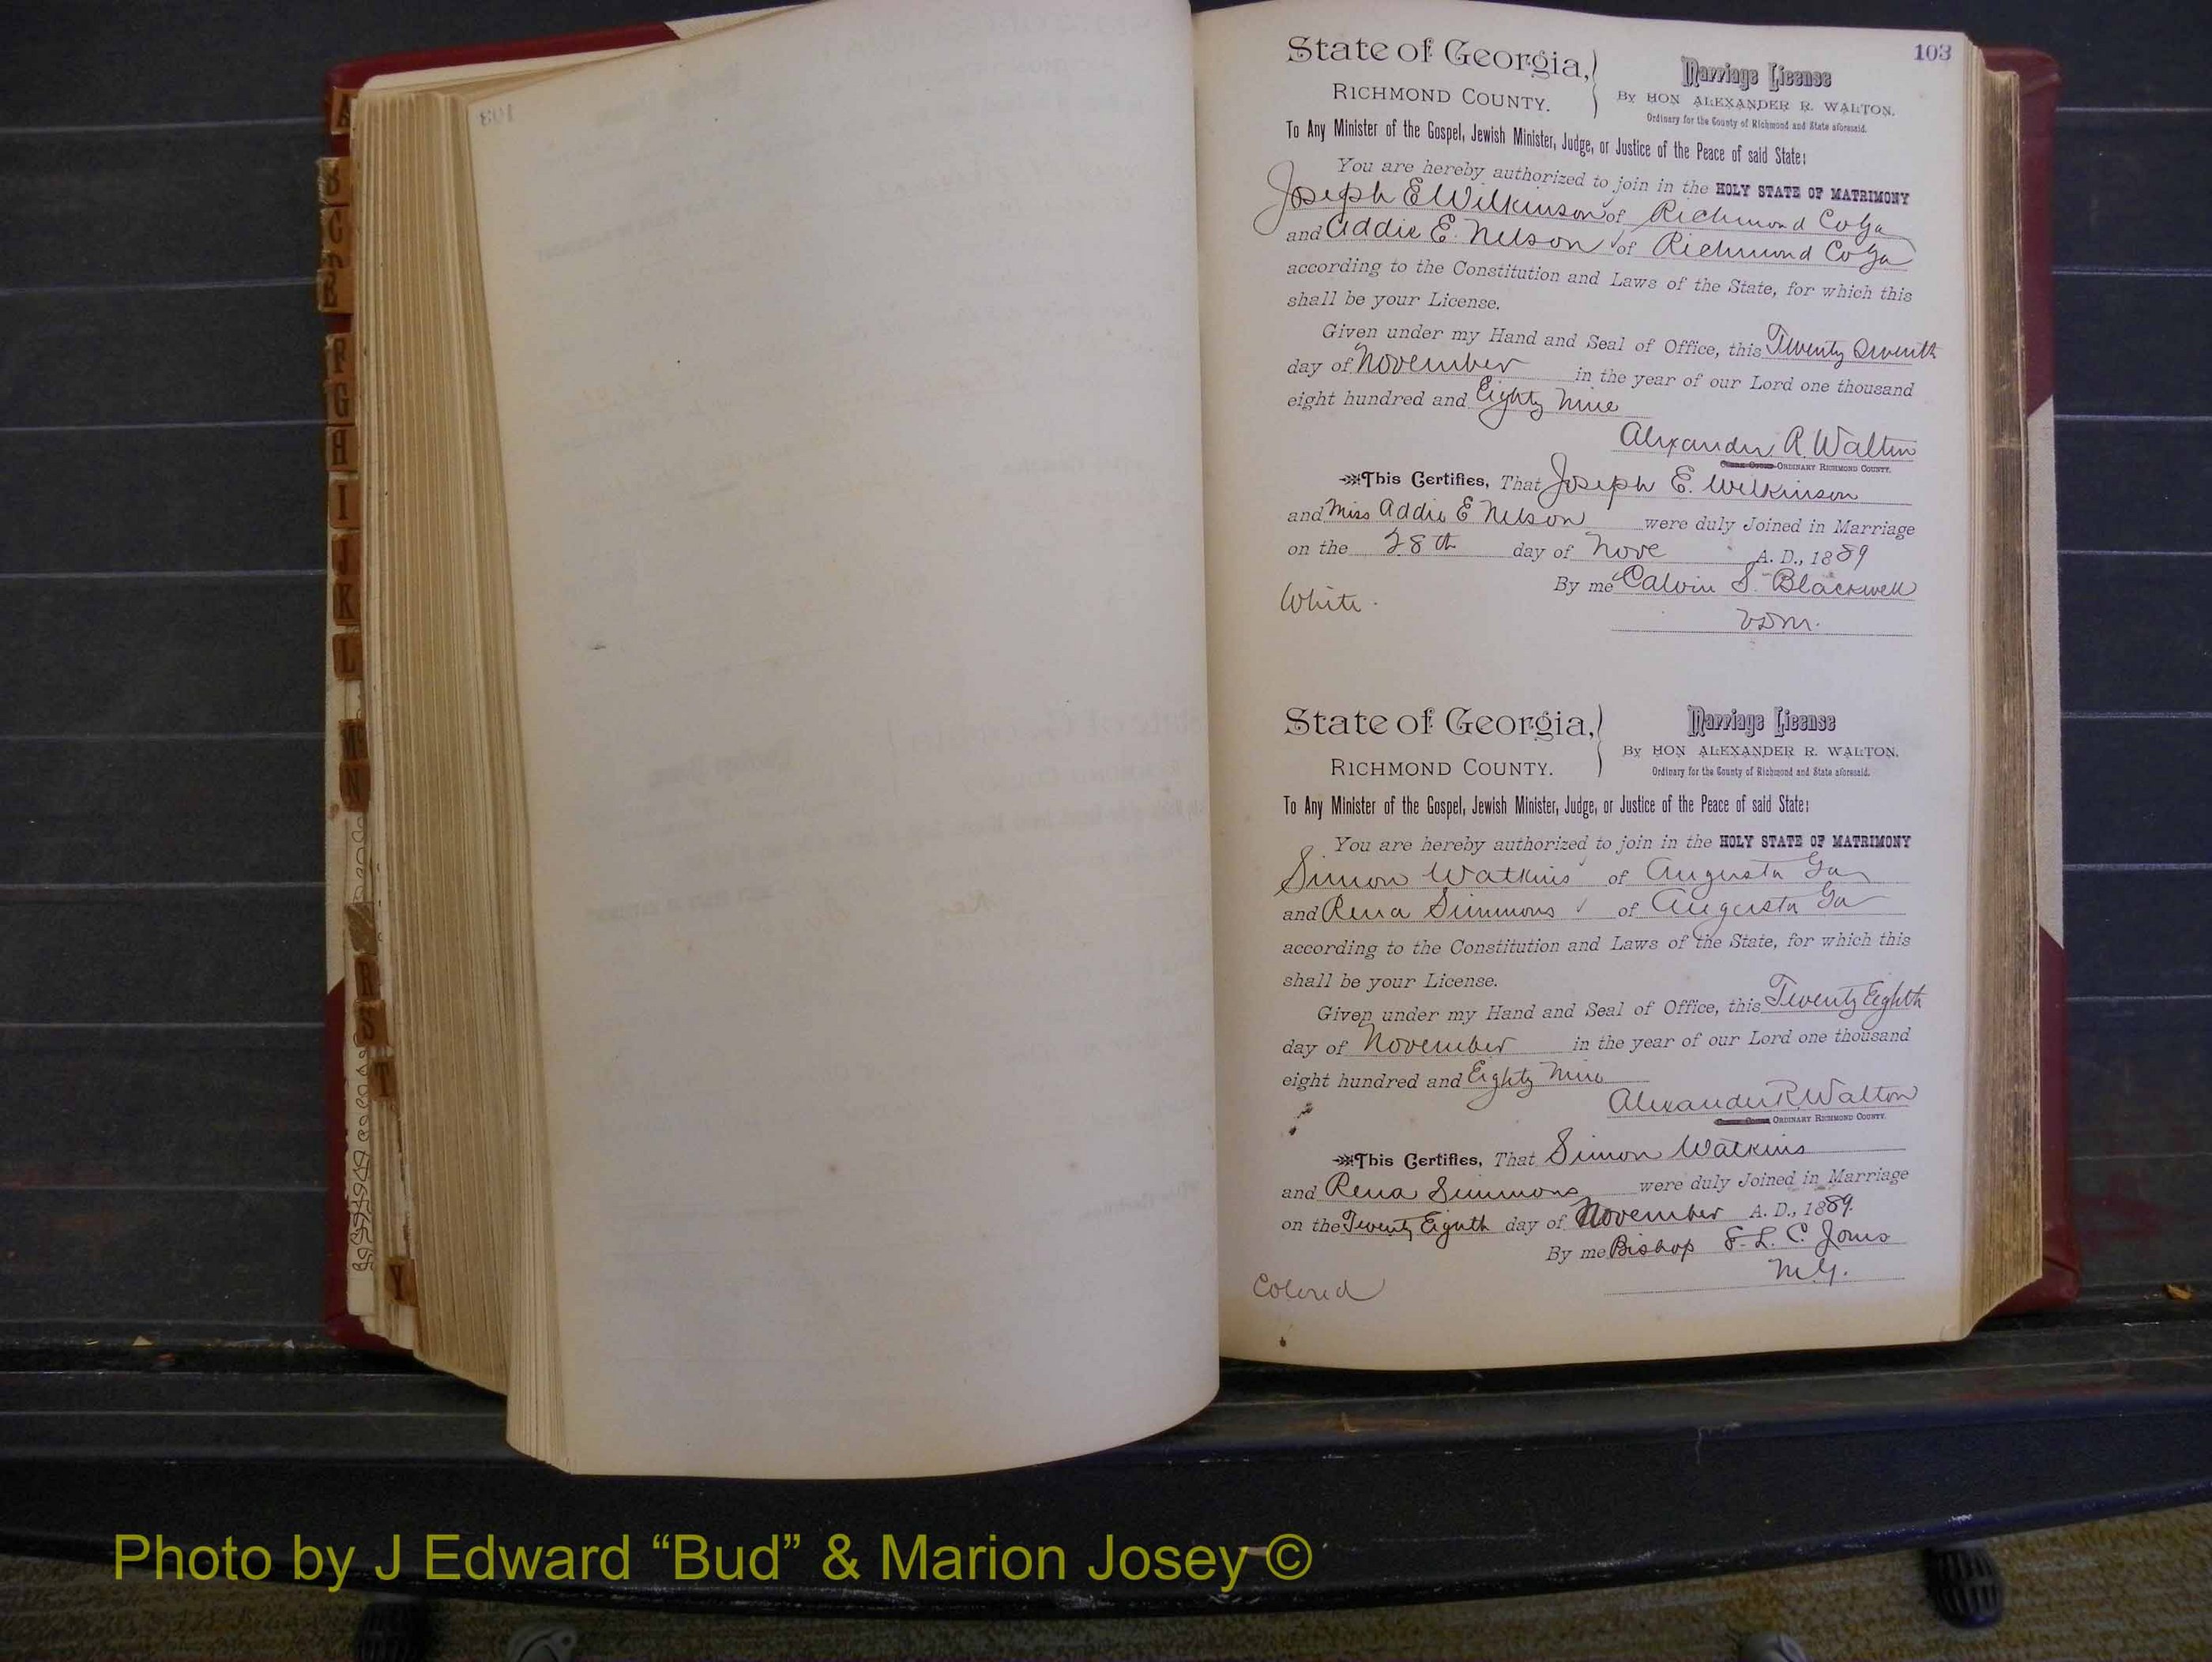 103
State of Georgia,
RICHMOND COUNTY.
Marriage License
By HON ALEXANDER R. WALTON.
Ordinary for the County of Richmond and State aforesaid.
To Any Minister of the Gospel, Jewish Minister, Judge, or Justice of the Peace of said State:
You are hereby authorized to join in the HOLY STATE OF MATRIMONY
Joseph E Wilkinson of Richmond Co Ga
and Addie E. Nelson of Richmond Co Ga
according to the Constitution and Laws of the State, for which this
shall be your License.
Given under my Hand and Seal of Office, this Twenty Seventh
day of November in the year of our Lord one thousand
eight hundred and Eighty Nine
Alexander R Walton
ORDINARY RICHMOND COUNTY.
This Certifies, That Joseph E. Wilkinson
and Miss Addie E Nelson were duly Joined in Marriage
on the 28th day of Nove A. D., 1889
By me Calvin S. Blackwell
White.
VDM.
State of Georgia,
RICHMOND COUNTY.
Marriage License
By HON ALEXANDER R. WALTON.
Ordinary for the County of Richmond and State aforesaid.
To Any Minister of the Gospel, Jewish Minister, Judge, or Justice of the Peace of said State:
You are hereby authorized to join in the HOLY STATE OF MATRIMONY
Simon Watkins of Augusta Ga
and Rena Simmons of Augusta Ga
according to the Constitution and Laws of the State, for which this
shall be your License.
Given under my Hand and Seal of Office, this Twenty Eighth
day of November in the year of our Lord one thousand
eight hundred and Eighty Nine
Alexander R. Walton
ORDINARY RICHMOND COUNTY.
This Certifies, That Simon Watkins
and Rena Simmons were duly Joined in Marriage
on the Twenty Eighth day of November A. D., 1889.
By me Bishop S. L. C. Jones
M.G.
Colored
A
B
C
F
G
H
I
J
K
L
Mc
N
R
S
T
Y
Photo by J Edward “Bud” & Marion Josey ©